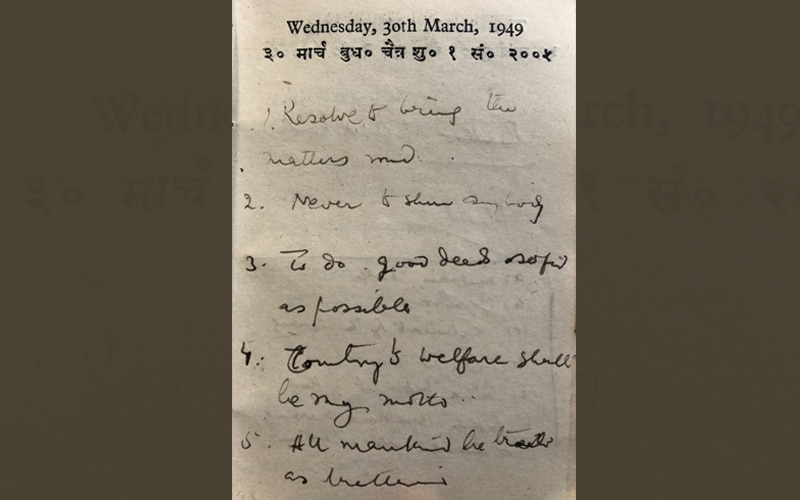 Wednesday, 30th March, 1949
३० मार्च बुध० चैत्र शु० १ सं० २००५
1. Resolve to bring the
matters
2. Never to shun anybody
3. To do good deeds as
as possible
4. Country's welfare shall
be my motto
5. All mankind be
as